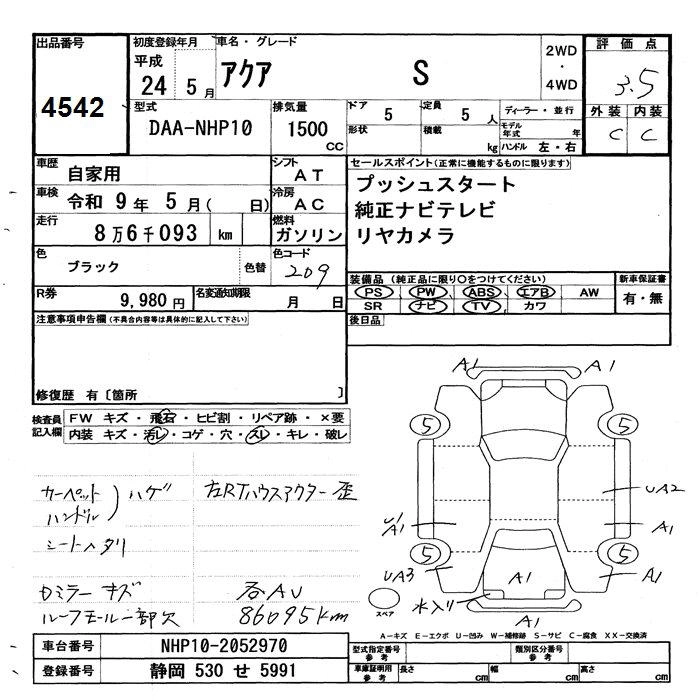 出品番号
4542
初度登録年月
平成
24 5月
車名・グレード
アクア S
2WD
・
4WD
評価点
3.5
外装 内装
C C
型式
DAA-NHP10
排気量
1500
CC
ドア
5
定員
5人
形状
積載
kg
ディーラー・並行
モデル年式 年
ハンドル 左・右
車歴
自家用
シフト
AT
車検
令和 9年 5月( 日)
冷房
AC
走行
8万6千093 km
燃料
ガソリン
色
ブラック
色替
色コード
209
R券
9,980円
名変通知期限
月 日
セールスポイント(正常に機能するものに限ります)
プッシュスタート
純正ナビテレビ
リヤカメラ
装備品(純正品に限り○をつけてください)
新車保証書
PS PW ABS エアB AW
有・無
SR ナビ TV カワ
後日品
注意事項申告欄(不具合内容等は具体的に記入して下さい)
修復歴 有〔箇所 〕
検査員記入欄
FW キズ・飛石・ヒビ割・リペア跡・×要
内装 キズ・汚レ・コゲ・穴・スレ・キレ・破レ
カーペット
ハンドル
ハゲ
左RTハウスアクター歪
シートヘタリ
ロミラーキズ
ルーフモール一部欠
各AU
86095km
A1 A1
5 5
UA2
U/A1 A1
5 5
UA3 A1 A1
水入り
A1
スペア
A-キズ E-エクボ U-凹み W-補修跡 S-サビ C-腐食 XX-交換済
車台番号
NHP10-2052970
登録番号
静岡 530 せ 5991
型式指定番号
参考
類別区分番号
参考
車庫証明用
参考
長さ cm
幅 cm
高さ cm